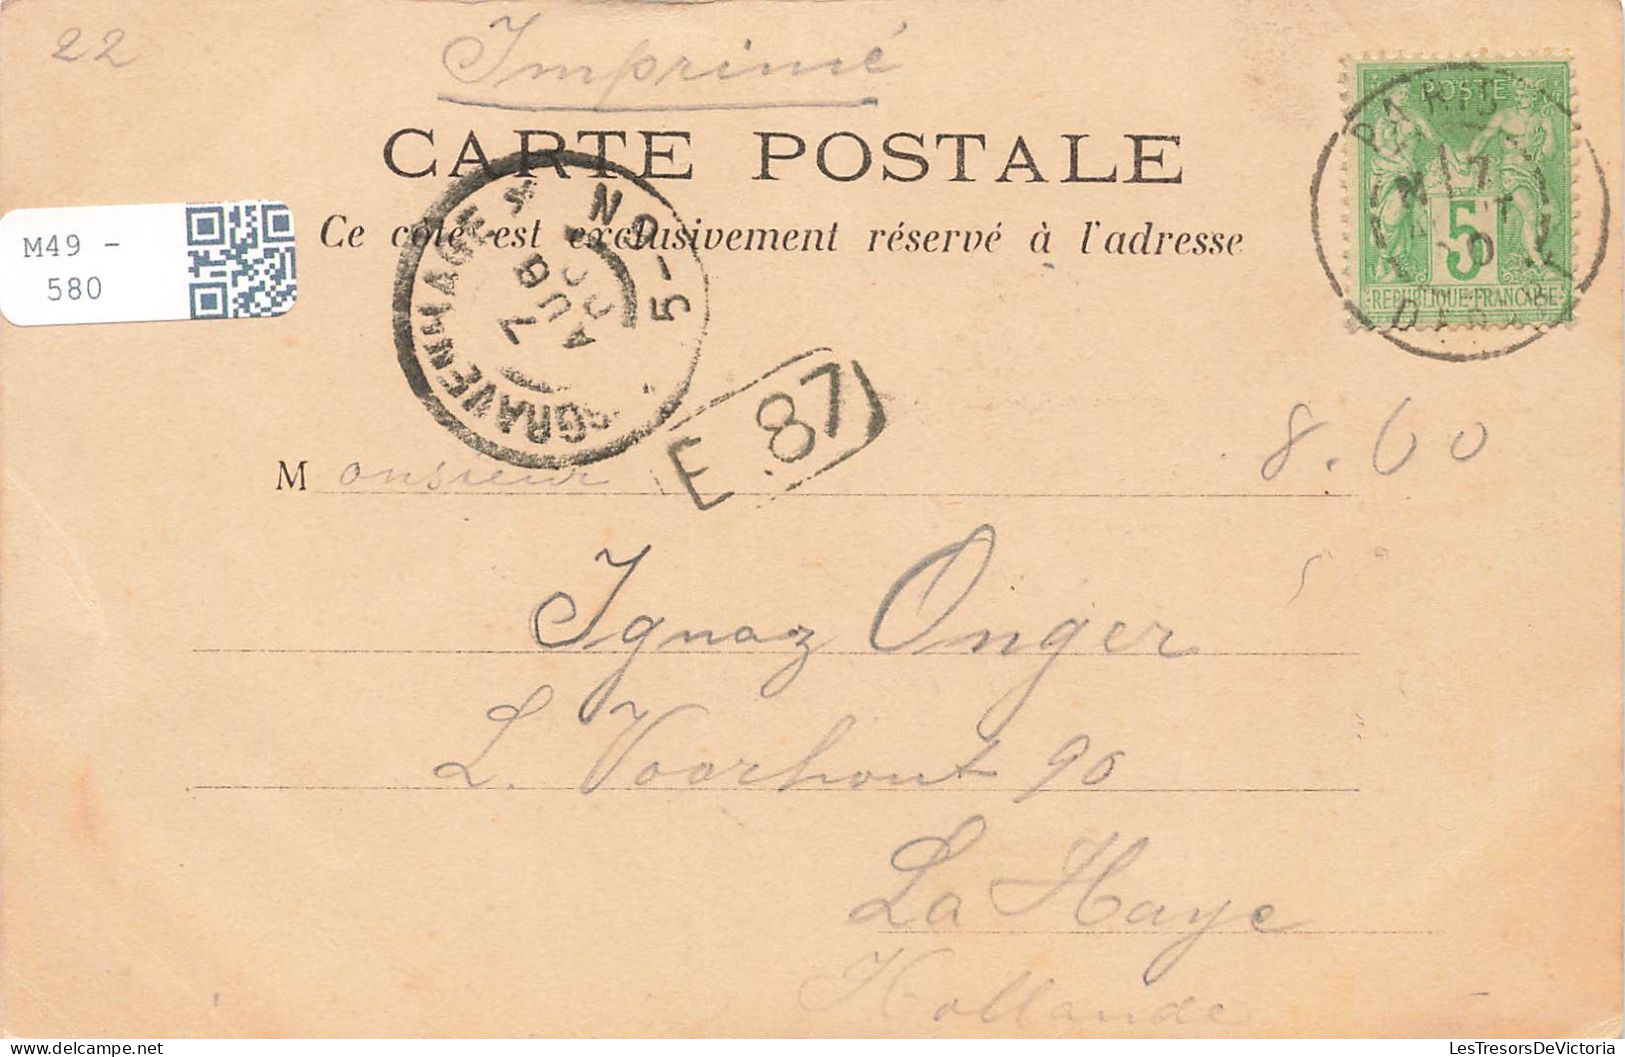 22
Imprimé
CARTE POSTALE
Ce côté est exclusivement réservé à l'adresse
M49 -
580
POSTE
5
REPUBLIQUE FRANÇAISE
PARIS
17
GRAVENHAGE
5-
7 AUG
00
E 87
8.60
Monsieur
Ignaz Onger
L. Voorhout 90
La Haye
Hollande
LesTresorsDeVictoria